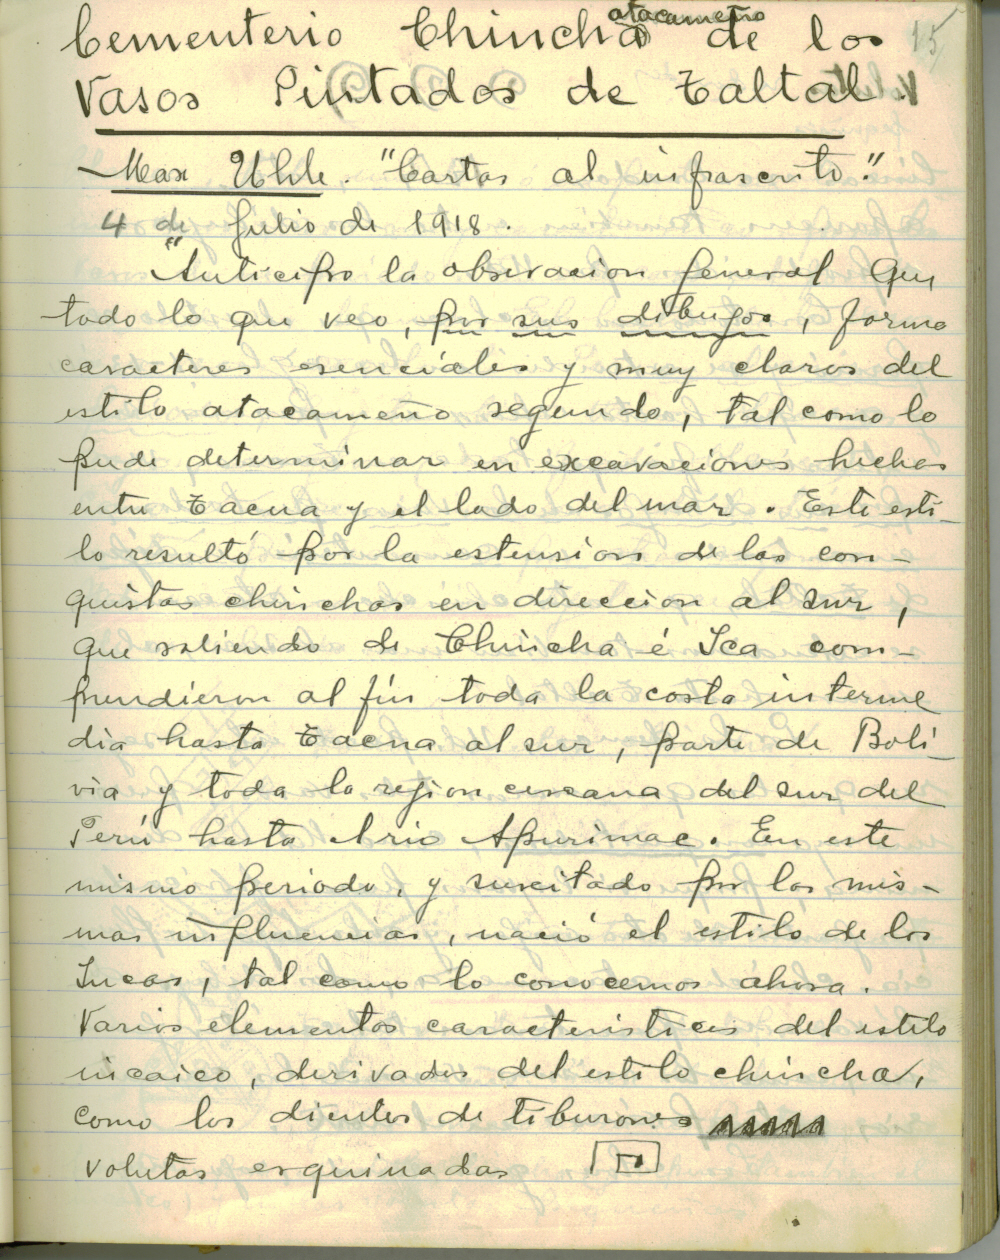 atacameño
Cementerio Chincha de los
15
Vasos Pintados de Taltal.
Max Uhle. "Cartas al infrascrito."
4 de Julio de 1918.
"Anticipo la obsrvacion general que
todo lo que veo, por sus dibugos, forma
caracteres esenciales y muy claros del
estilo atacameño segundo, tal como lo
pude determinar en excavaciones hechas
entre Tacna y el lado del mar. Este esti-
lo resultó por la estension de las con-
quistas chinchas en direccion al sur,
que saliendo de Chincha é Ica com-
prendieron al fin toda la costa interme
dia hasta Tacna al sur, parte de Boli-
via y toda la region cercana del sur del
Perú hasta el rio Apurimac. En este
mismo periodo, y suscitado por las mis-
mas influencias, nació el estilo de los
Incas, tal como lo conocemos ahora.
Varios elementos caracteristicos del estilo
incaico, derivados del estilo chincha,
como los dientes de tiburones
volutas esquinadas